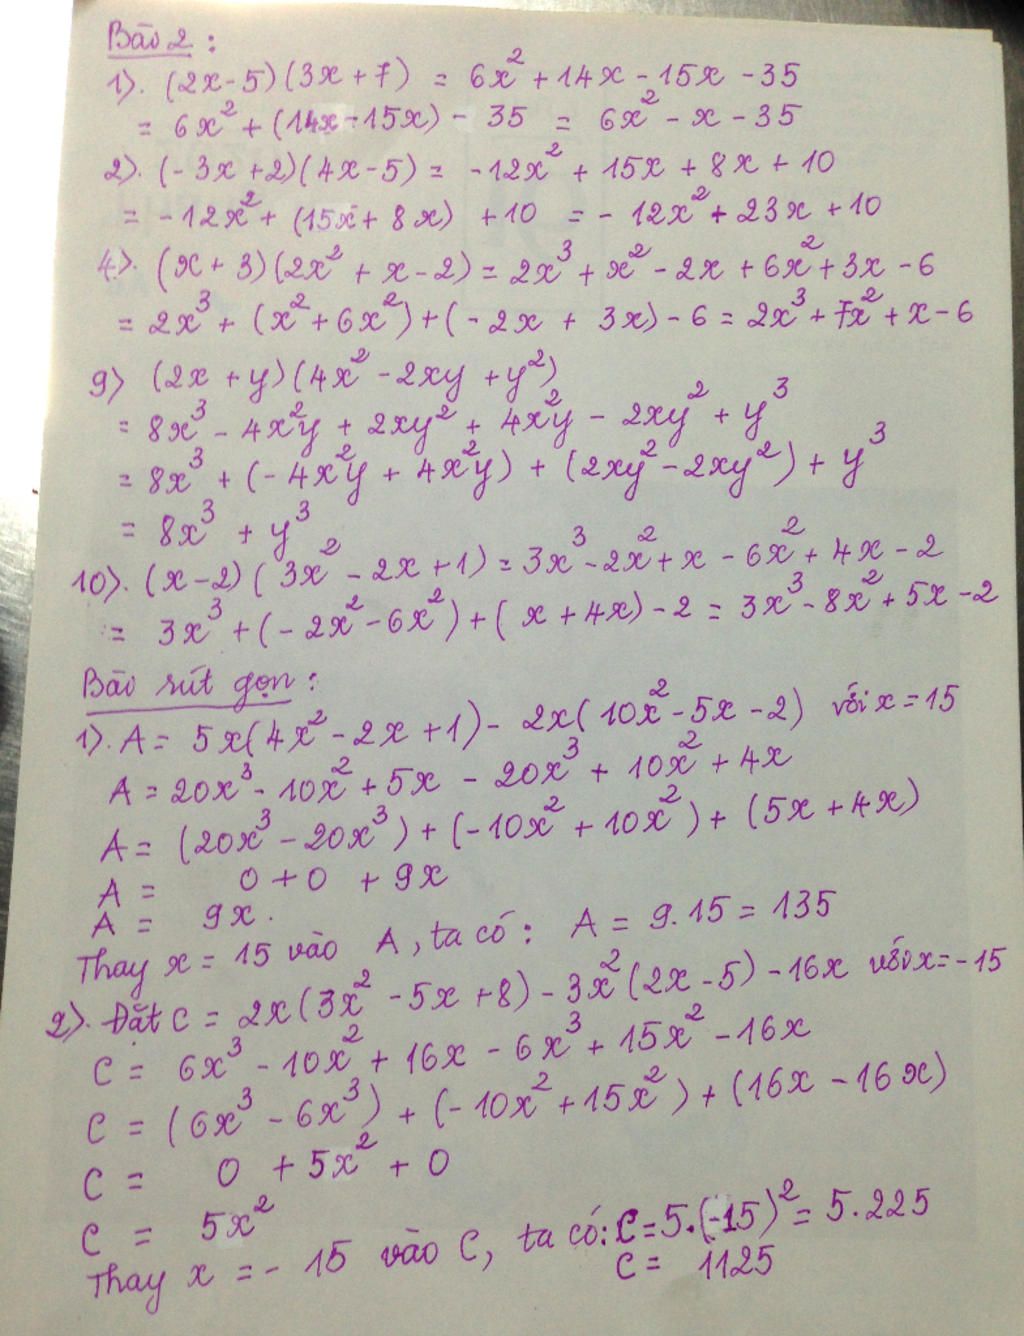 Bài 2 :
1). (2x-5)(3x+7) = 6x² + 14x - 15x - 35
= 6x² + (14x - 15x) - 35 = 6x² - x - 35
2). (-3x+2)(4x-5) = -12x² + 15x + 8x + 10
= -12x² + (15x + 8x) + 10 = -12x² + 23x + 10
4). (x + 3)(2x² + x - 2) = 2x³ + x² - 2x + 6x² + 3x - 6
= 2x³ + (x² + 6x²) + (-2x + 3x) - 6 = 2x³ + 7x² + x - 6
9) (2x + y)(4x² - 2xy + y²)
= 8x³ - 4x²y + 2xy² + 4x²y - 2xy² + y³
= 8x³ + (-4x²y + 4x²y) + (2xy² - 2xy²) + y³
= 8x³ + y³
10). (x-2)(3x² - 2x + 1) = 3x³ - 2x² + x - 6x² + 4x - 2
= 3x³ + (-2x² - 6x²) + (x + 4x) - 2 = 3x³ - 8x² + 5x - 2
Bài rút gọn :
1). A = 5x(4x² - 2x + 1) - 2x(10x² - 5x - 2) với x = 15
A = 20x³ - 10x² + 5x - 20x³ + 10x² + 4x
A = (20x³ - 20x³) + (-10x² + 10x²) + (5x + 4x)
A = 0 + 0 + 9x
A = 9x.
Thay x = 15 vào A, ta có : A = 9.15 = 135
2). Đặt C = 2x(3x² - 5x + 8) - 3x²(2x - 5) - 16x với x = -15
C = 6x³ - 10x² + 16x - 6x³ + 15x² - 16x
C = (6x³ - 6x³) + (-10x² + 15x²) + (16x - 16x)
C = 0 + 5x² + 0
C = 5x²
Thay x = -15 vào C, ta có : C = 5.(-15)² = 5.225
C = 1125